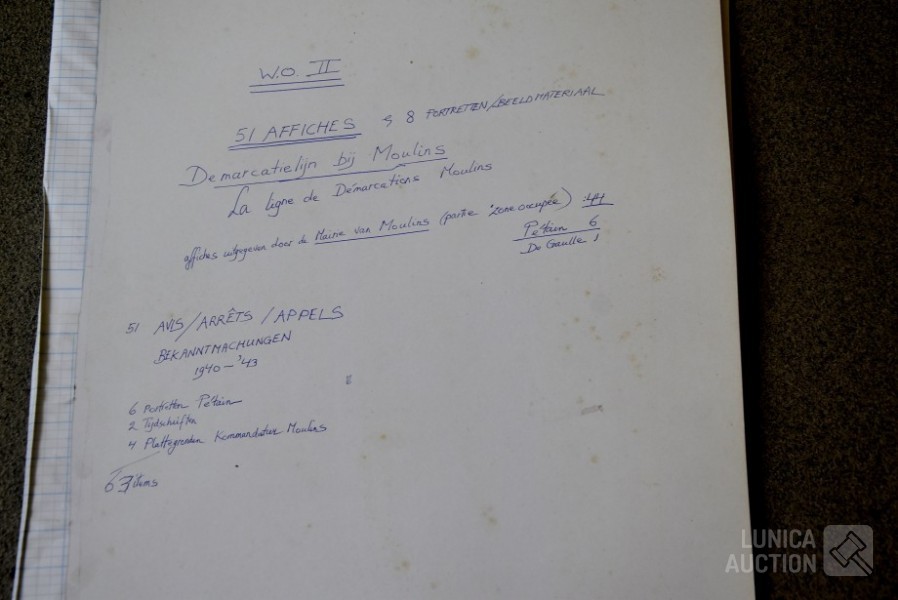 W.O. II
51 AFFICHES & 8 PORTRETTEN/BEELDMATERIAAL
Demarcatielijn bij Moulins
La ligne de Démarcations Moulins
affiches uitgegeven door de Mairie van Moulins (partie "zone occupée)
Pétain 6
De Gaulle 1
51 AVIS/ARRÊTS/APPELS
BEKANNTMACHUNGEN
1940-'43
6 Portretten Pétain
2 Tijdschriften
4 Plattegronden Kommandatur Moulins
63 items
LUNICA
AUCTION